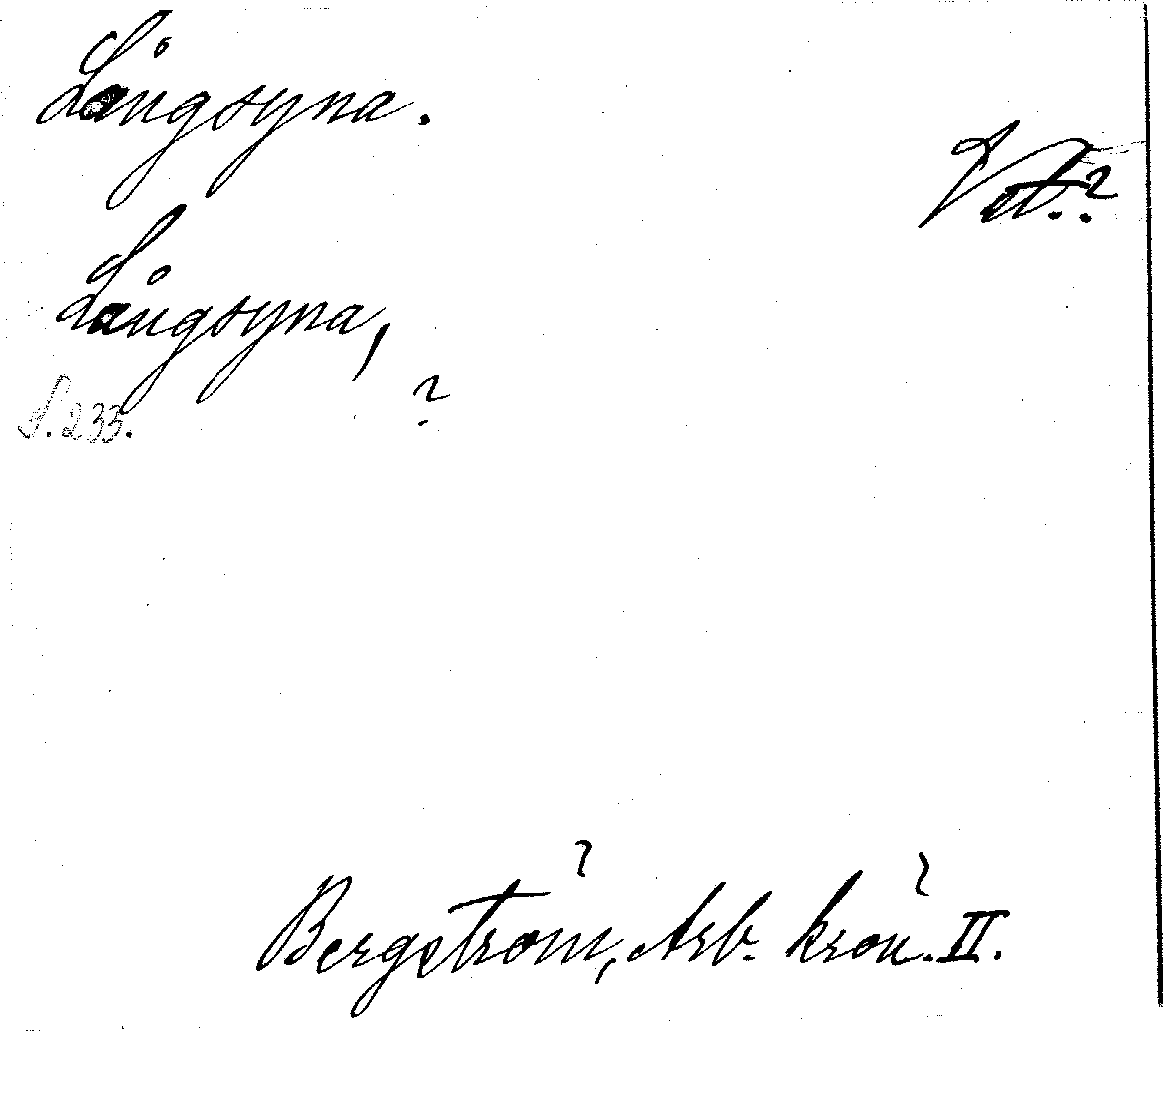 Långsyna.
Vst.?
Långsyna,
?
S. 233.
Bergström, Arb. krön. II.